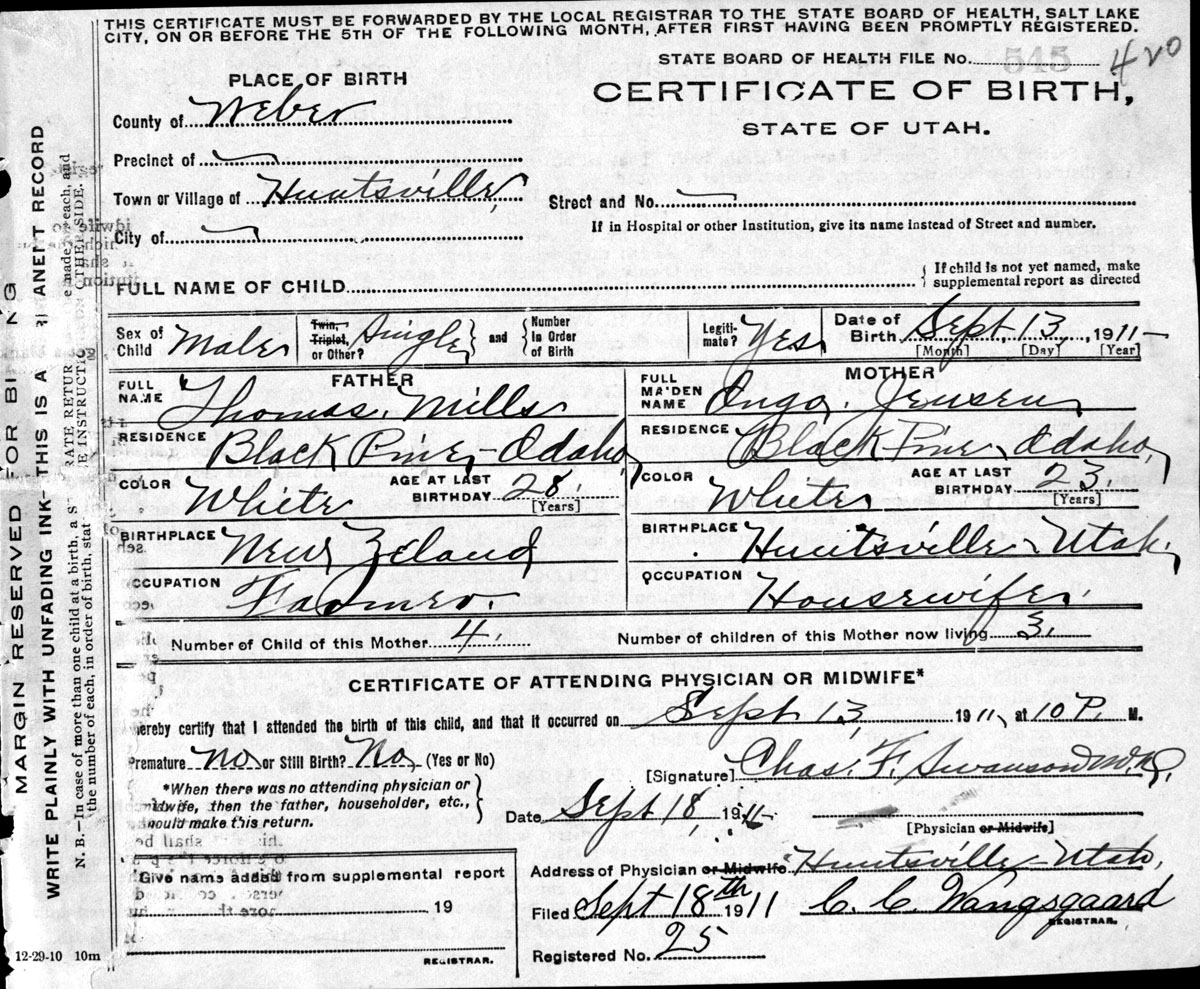 THIS CERTIFICATE MUST BE FORWARDED BY THE LOCAL REGISTRAR TO THE STATE BOARD OF HEALTH, SALT LAKE
CITY, ON OR BEFORE THE 5TH OF THE FOLLOWING MONTH, AFTER FIRST HAVING BEEN PROMPTLY REGISTERED.
STATE BOARD OF HEALTH FILE No. 545 420
PLACE OF BIRTH
CERTIFICATE OF BIRTH,
STATE OF UTAH.
County of Weber
Precinct of
Town or Village of Huntsville,
Street and No.
If in Hospital or other Institution, give its name instead of Street and number.
City of
FULL NAME OF CHILD
If child is not yet named, make
supplemental report as directed
Sex of Child Male
Twin, Triplet, or Other? Single and Number in Order of Birth
Legiti-mate? Yes
Date of Birth Sept 13, 1911
[Month] [Day] [Year]
FATHER
FULL NAME Thomas Mills
RESIDENCE Black Pine, Idaho
COLOR White AGE AT LAST BIRTHDAY 28. [Years]
BIRTHPLACE New Zeland
OCCUPATION Farmer.
MOTHER
FULL MAIDEN NAME Inga Jensen
RESIDENCE Black Pine Idaho,
COLOR White AGE AT LAST BIRTHDAY 23. [Years]
BIRTHPLACE Huntsville Utah,
OCCUPATION Housewife.
Number of Child of this Mother 4. Number of children of this Mother now living 3.
CERTIFICATE OF ATTENDING PHYSICIAN OR MIDWIFE*
hereby certify that I attended the birth of this child, and that it occurred on Sept 13 1911, at 10 P. M.
Premature No or Still Birth? No, (Yes or No)
[Signature] Chas. F. Swanson M.D.
*When there was no attending physician or
midwife, then the father, householder, etc.,
should make this return.
Date Sept 18, 1911
[Physician or Midwife]
Address of Physician or Midwife Huntsville Utah,
Give name added from supplemental report
19
REGISTRAR.
Filed Sept 18th 1911 C. C. Wangsgaard
REGISTRAR.
Registered No. 25
12-29-10 10m
MARGIN RESERVED FOR BI NG
WRITE PLAINLY WITH UNFADING INK—THIS IS A ANENT RECORD
N. B.—In case of more than one child at a birth, a S RATE RETUR e made for each, and
the number of each, in order of birth, stat E INSTRUCTIO ON OTHER SIDE.